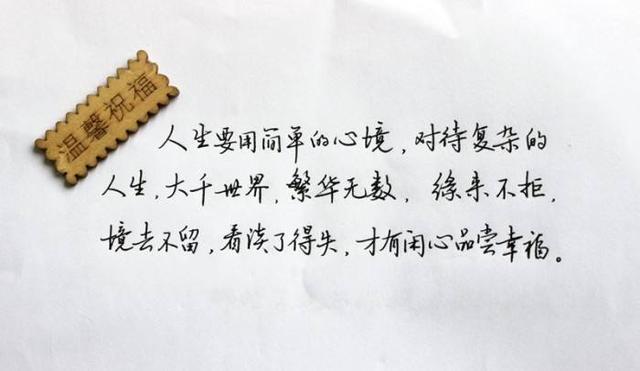 温馨祝福
人生要用简单的心境，对待复杂的
人生，大千世界，繁华无数，缘来不拒，
境去不留，看淡了得失，才有闲心品尝幸福。